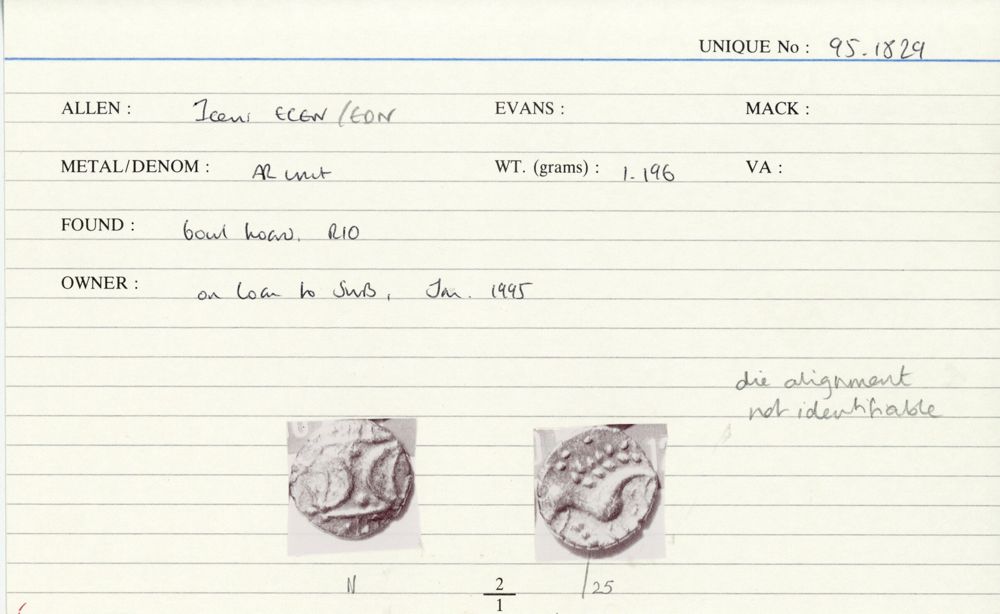 UNIQUE No : 95.1829
ALLEN : Iceni ECEN /EDN EVANS : MACK :
METAL/DENOM : AR unit WT. (grams) : 1.196 VA :
FOUND : bowl hoard. R10
OWNER : on loan to SWB, Jan. 1995
die alignment
not identifiable
N 2 /25
1